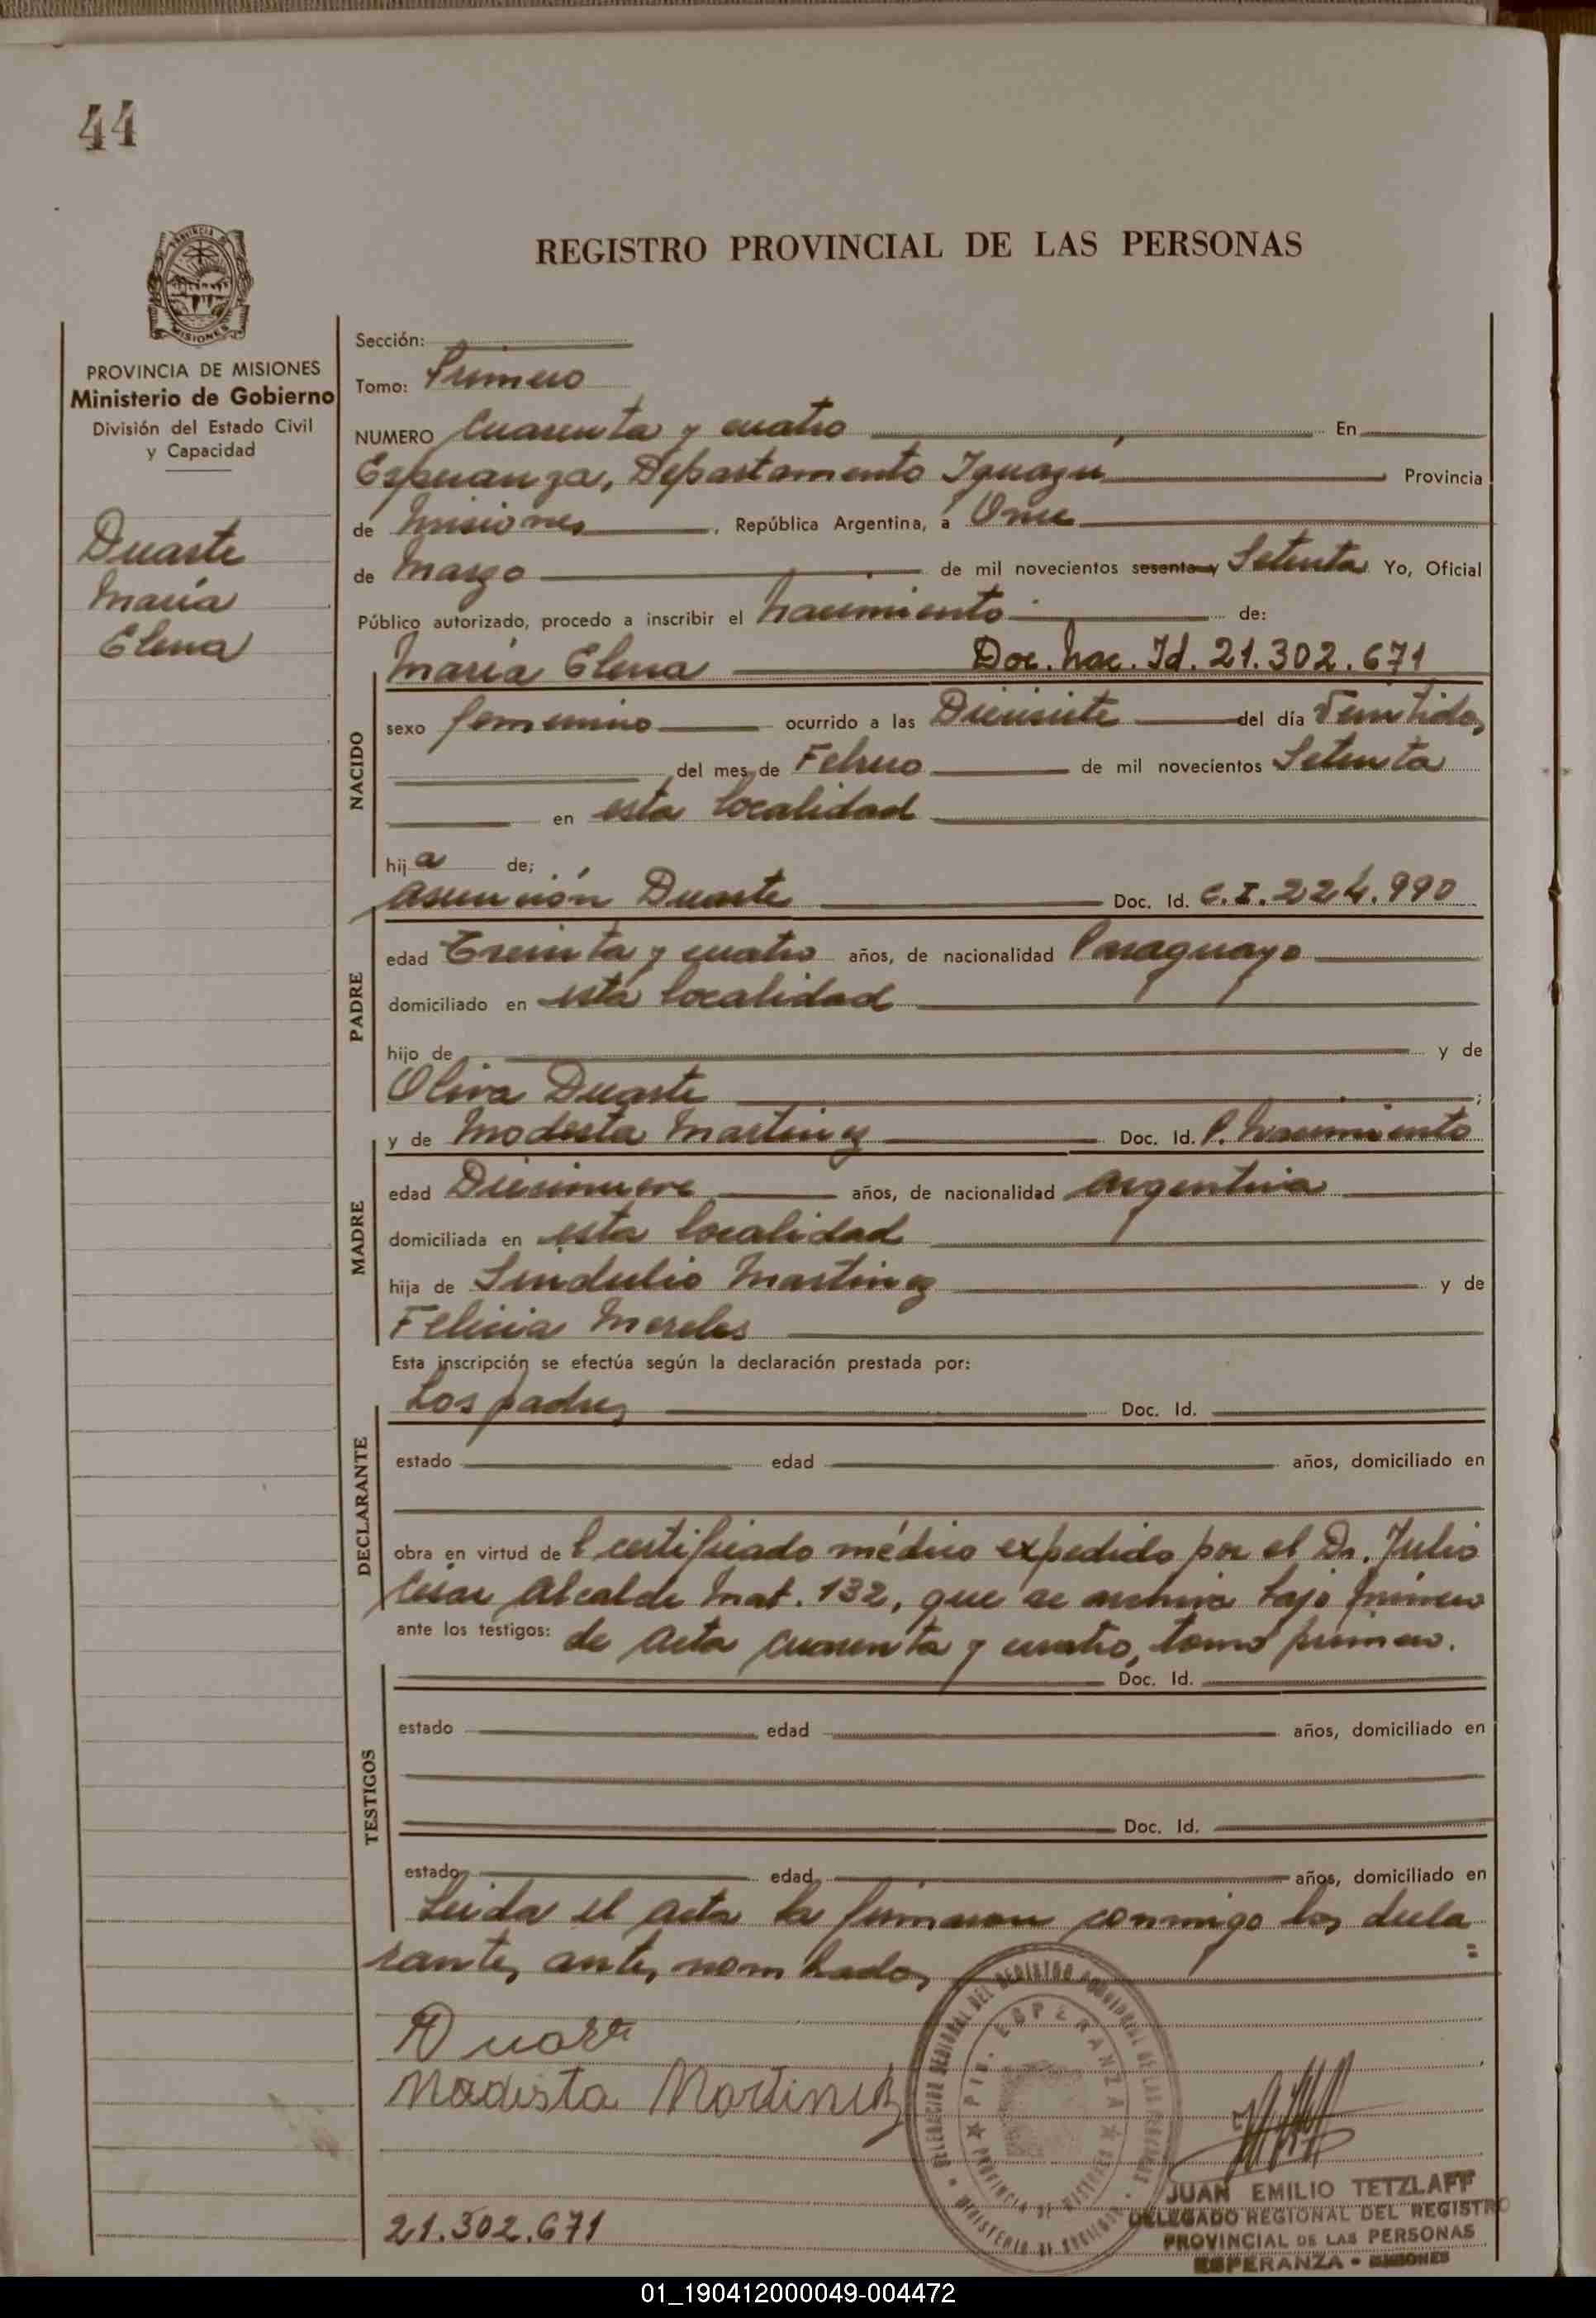 44
REGISTRO PROVINCIAL DE LAS PERSONAS
PROVINCIA DE MISIONES
Ministerio de Gobierno
División del Estado Civil
y Capacidad
Duarte
María
Elena
Sección:
Tomo: Primero
NUMERO Cuarenta y cuatro En
Esperanza, Departamento Iguazú Provincia
de Misiones, República Argentina, a Once
de Marzo de mil novecientos sesenta y Setenta Yo, Oficial
Público autorizado, procedo a inscribir el Nacimiento de:
María Elena Doc. Nac. Id. 21.302.671
NACIDO
sexo femenino ocurrido a las Diecisiete del día Veintidos
del mes de Febrero de mil novecientos Setenta
en esta localidad
hija de;
Asunción Duarte Doc. Id. C.I. 224.990
PADRE
edad Treinta y cuatro años, de nacionalidad Paraguayo
domiciliado en esta localidad
hijo de y de
Oliva Duarte ;
y de Modesta Martinez Doc. Id. P. Nacimiento
MADRE
edad Diecinueve años, de nacionalidad Argentina
domiciliada en esta localidad
hija de Sindulio Martinez y de
Felicia Mereles
Esta inscripción se efectúa según la declaración prestada por:
Los padres Doc. Id.
DECLARANTE
estado edad años, domiciliado en
obra en virtud de l certificado médico expedido por el Dr. Julio
César Alcalde Mat. 132, que se archiva bajo número
ante los testigos: de Acta cuarenta y cuatro, tomo primero.
Doc. Id.
TESTIGOS
estado edad años, domiciliado en
Doc. Id.
estado edad años, domiciliado en
Leida el acta la firmaron conmigo los decla
rantes antes nombrados
Duarte
Modesta Martinez
DELEGACION REGIONAL DEL REGISTRO PROVINCIAL DE LAS PERSONAS
PTO. ESPERANZA
PROVINCIA DE MISIONES
MINISTERIO DE GOBIERNO
JUAN EMILIO TETZLAFF
DELEGADO REGIONAL DEL REGISTRO
PROVINCIAL DE LAS PERSONAS
ESPERANZA - MISIONES
21.302.671
01_190412000049-004472